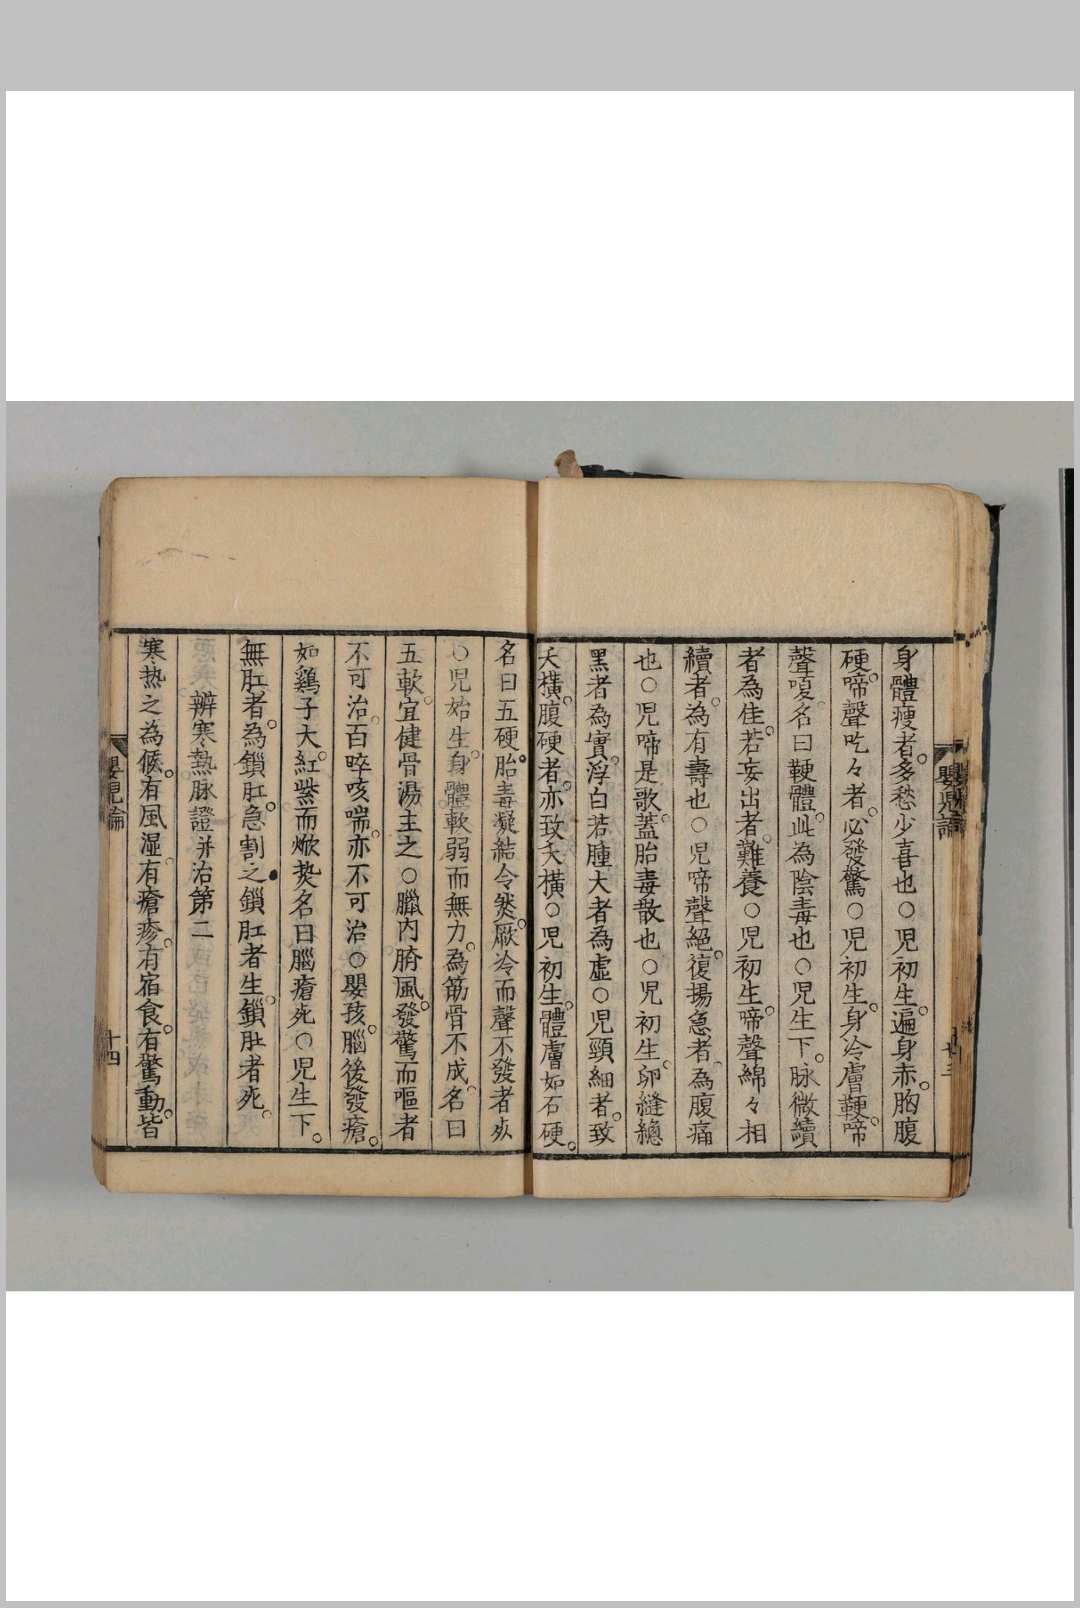 身體瘦者。多愁少喜也○児初生。遍身赤。胸腹
硬。啼聲吃々者。必發驚○児初生。身冷膚鞕。啼
聲嗄。名曰鞕體。此為陰毒也○児生下。脉微續
者為佳。若妄出者。難養○児初生。啼聲綿々相
續者。為有壽也○児啼聲絕。復揚急者。為腹痛
也○児啼是歌。蓋胎毒散也○児初生。卵縫總
黑者為實。浮白若腫大者為虛○児頸細者。致
夭橫。腹硬者。亦致夭橫○児初生。體膚如石硬。
名曰五硬。胎毒凝結令然。厥冷而聲不發者死
○児始生。身體軟弱而無力。為筋骨不成。名曰
五軟。宜健骨湯主之○臘內胯風。發驚而嘔者
不可治。百晬咳喘。亦不可治○嬰孩。腦後發瘡。
如鷄子大。紅紫而焮𤍠名曰腦瘡死○児生下。
無肛者。為鎖肛。急割之鎖肛者生。鎖肚者死。
辨寒熱脉證并治第二
寒热之為候。有風湿。有瘡疹。有宿食。有驚動。皆
嬰児論
十三
嬰児論
十四